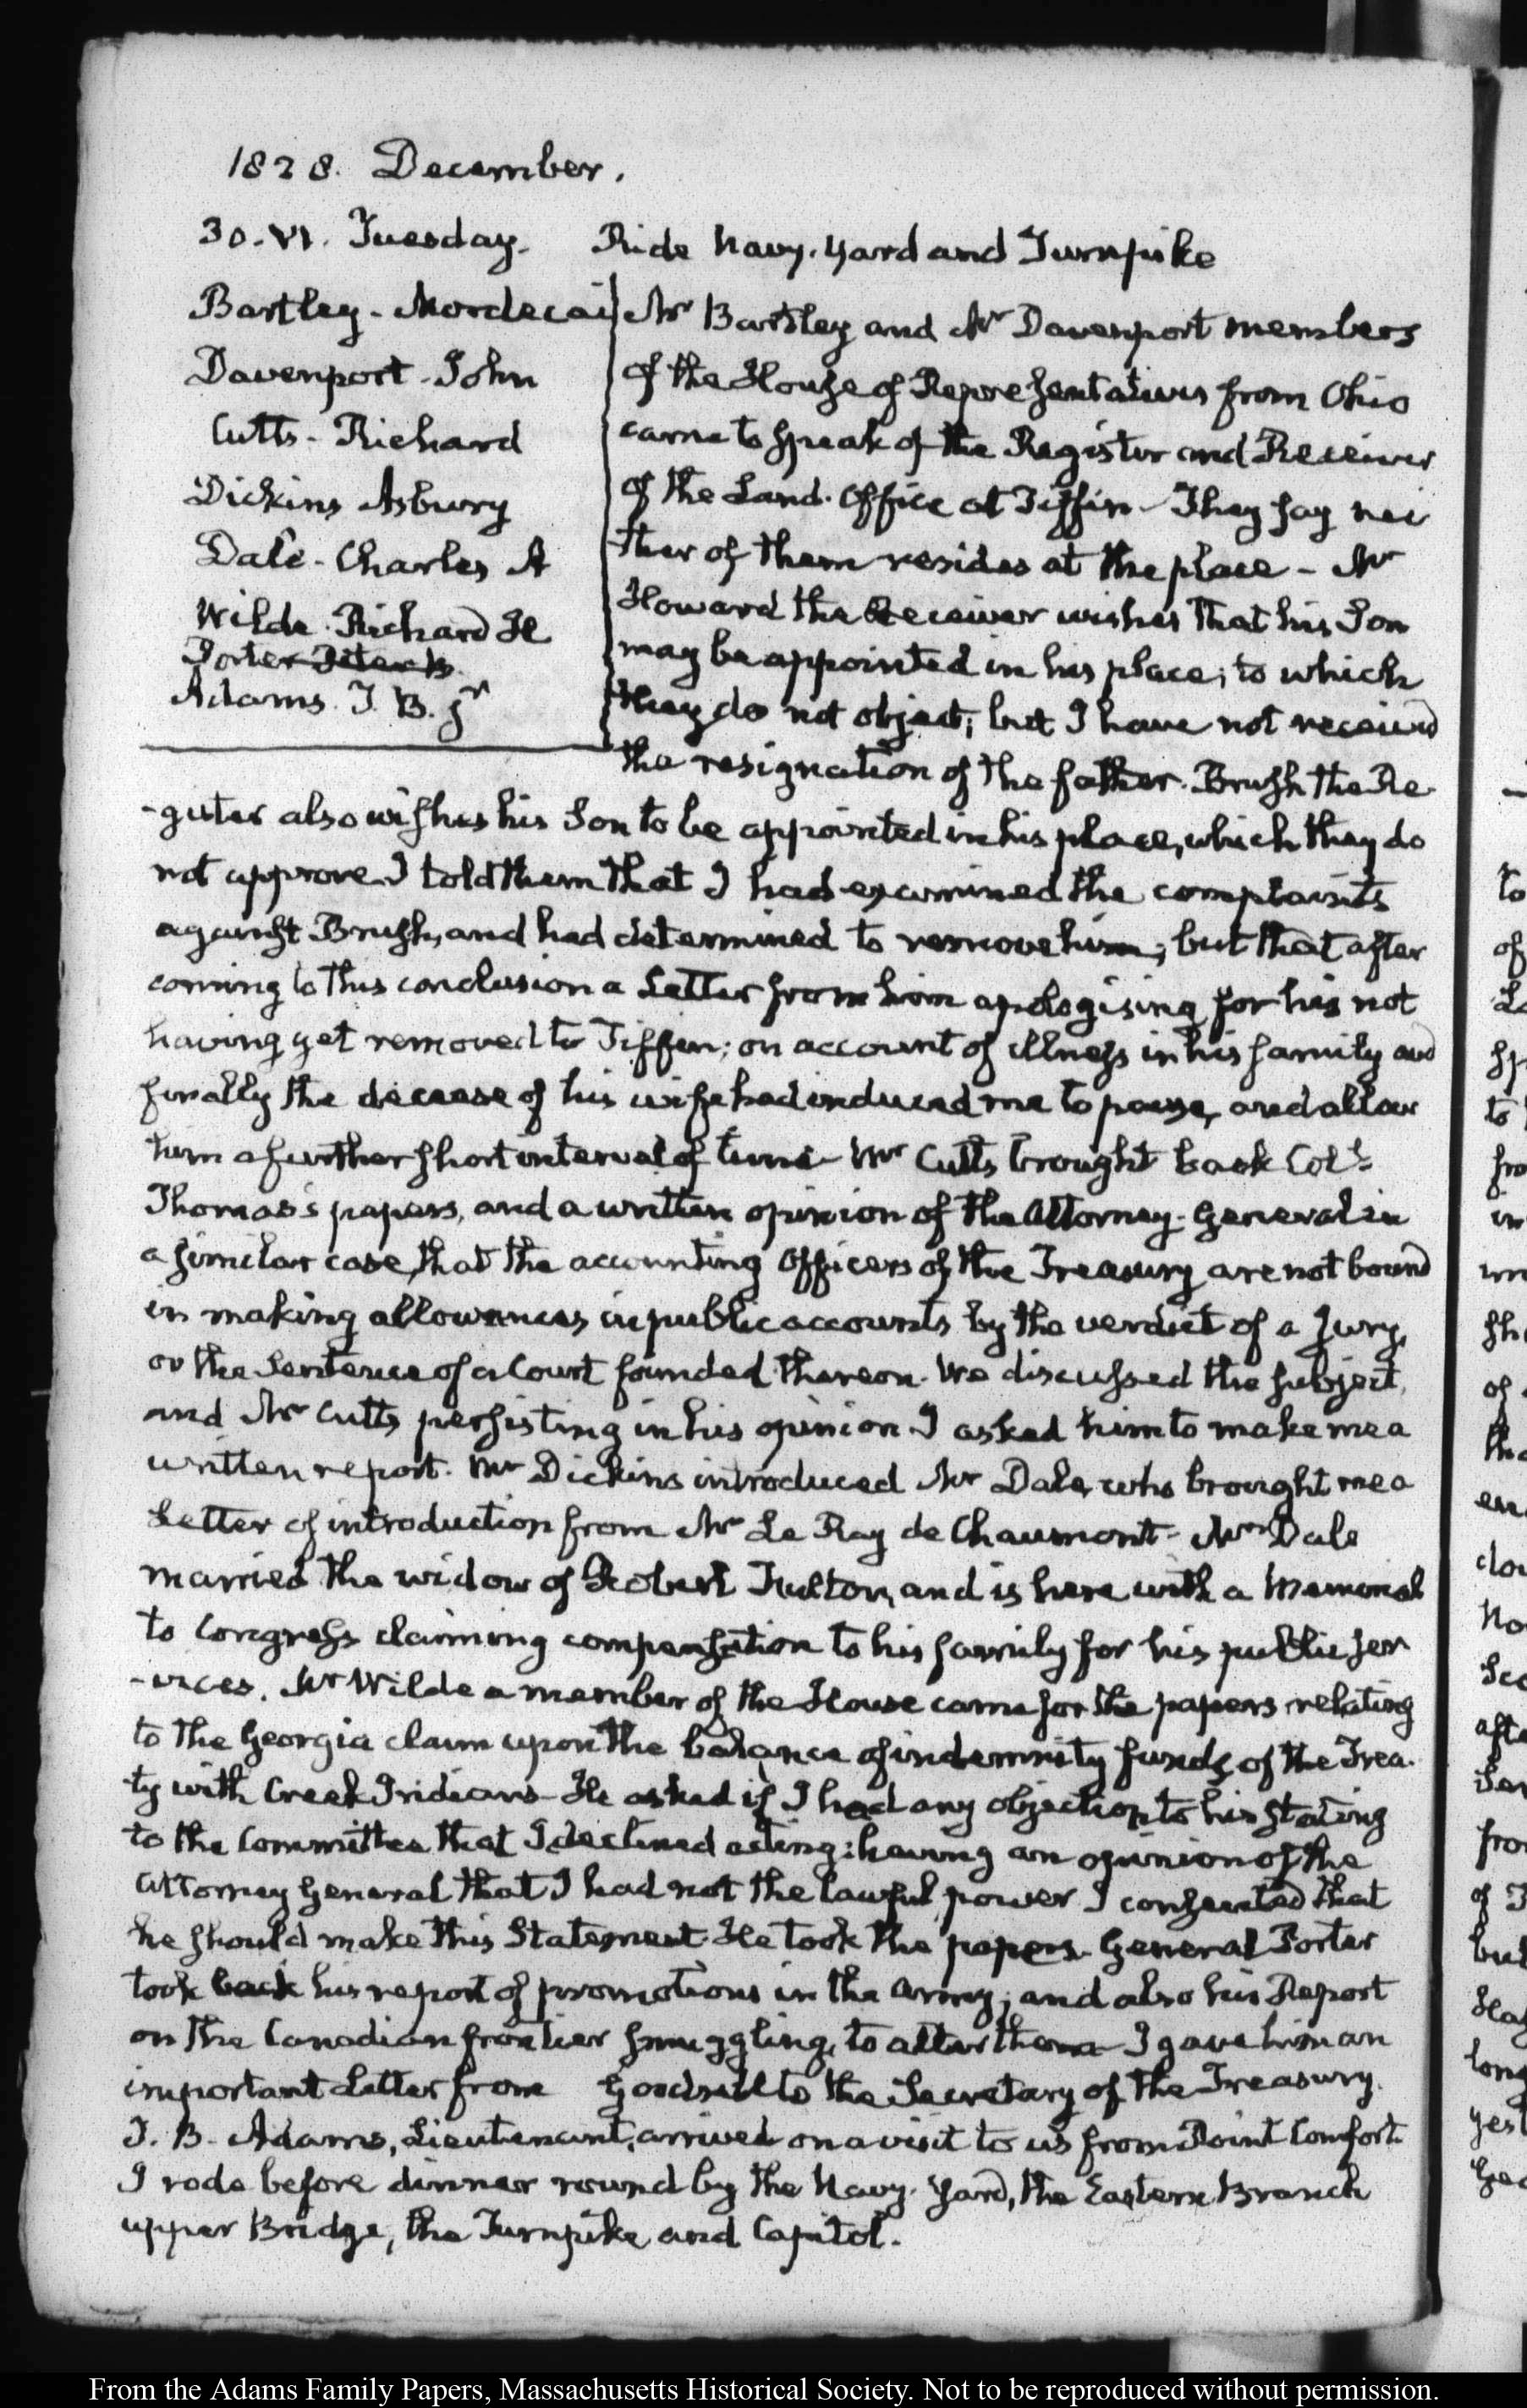 1828. December.
30. VI. Tuesday. Ride Navy-Yard and Turnpike
Bartley - Mordecai
Davenport - John
Cutts - Richard
Dickins Asbury
Dale - Charles A
Wilde - Richard H
Porter Peter B.
Adams. J. B. Jr
Mr Bartley and Mr Davenport members
of the House of Representatives from Ohio
came to speak of the Register and Receiver
of the Land-Office at Tiffin - They say nei
ther of them resides at the place - Mr
Howard the Receiver wishes that his Son
may be appointed in his place; to which
they do not object; but I have not received
the resignation of the father. Brush the Re-
-gister also wishes his Son to be appointed in his place, which they do
not approve. I told them that I had examined the complaints
against Brush, and had determined to remove him; but that after
coming to this conclusion a Letter from him apologising for his not
having yet removed to Tiffin; on account of illness in his family and
finally the decease of his wife had induced me to pause, and allow
him a further short interval of time - Mr Cutts brought back Coll.
Thomas's papers, and a written opinion of the Attorney-General in
a similar case, that the accounting Officers of the Treasury are not bound
in making allowances in public accounts by the verdict of a Jury,
or the Sentence of a Court founded thereon. We discussed the subject,
and Mr Cutts persisting in his opinion I asked him to make me a
written report. Mr Dickins introduced Mr Dale, who brought me a
Letter of introduction from Mr Le Ray de Chaumont - Mr Dale
married the widow of Robert Fulton, and is here with a Memorial
to Congress claiming compensation to his family for his public ser
-vices. Mr Wilde a member of the House came for the papers relating
to the Georgia claim upon the balance of indemnity funds of the Trea-
ty with Creek Indians - He asked if I had any objection to his stating
to the Committee that I declined acting: having an opinion of the
Attorney General that I had not the lawful power. I consented that
he should make this Statement. He took the papers. General Porter
took back his report of promotions in the Army; and also his Report
on the Canadian frontier smuggling, to alter them - I gave him an
important Letter from Goodsell to the Secretary of the Treasury.
J. B. Adams, Lieutenant, arrived on a visit to us from Point Comfort.
I rode before dinner round by the Navy-Yard, the Eastern Branch
upper Bridge, the Turnpike and Capitol.
From the Adams Family Papers, Massachusetts Historical Society. Not to be reproduced without permission.